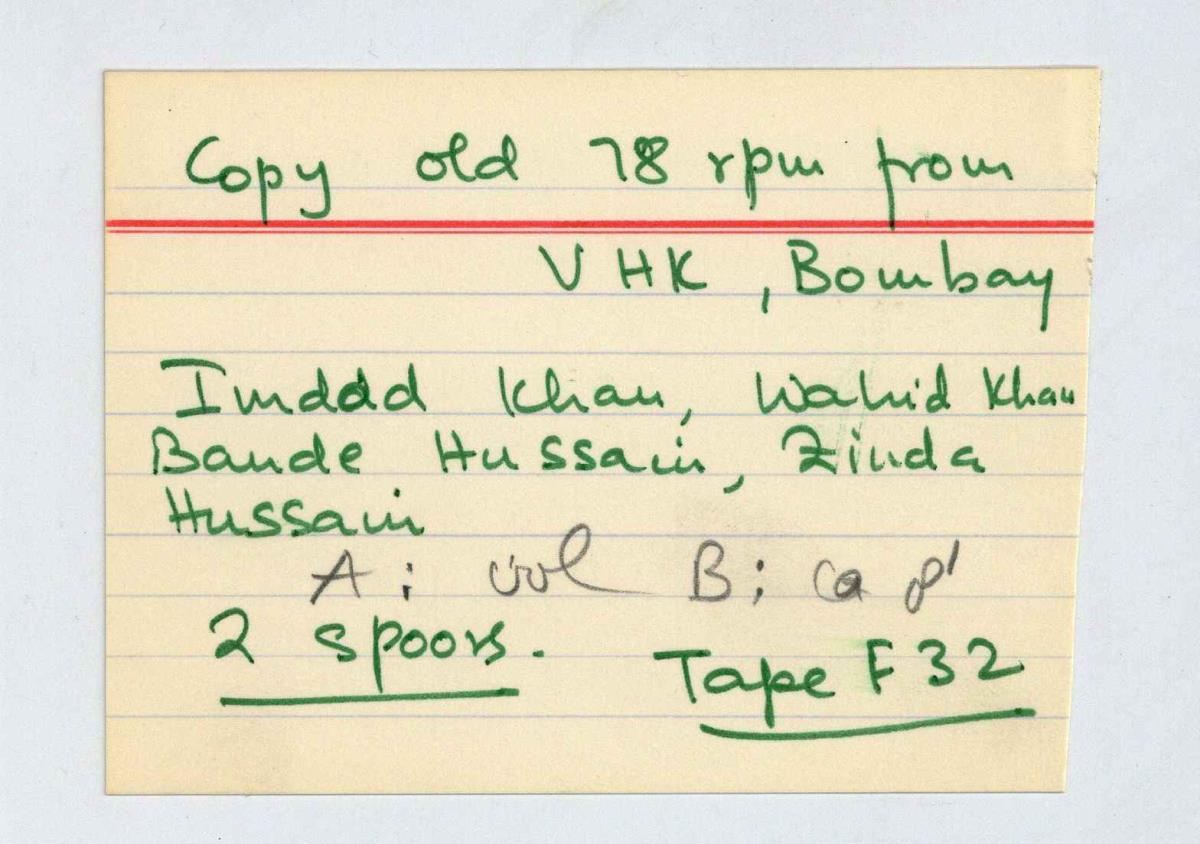 Copy old 78 rpm from
VHK, Bombay
Imdad Khan, Wahid Khan
Bande Hussain, Zinda
Hussain
A: vol B: ca 8'
2 spoors.
Tape F 32